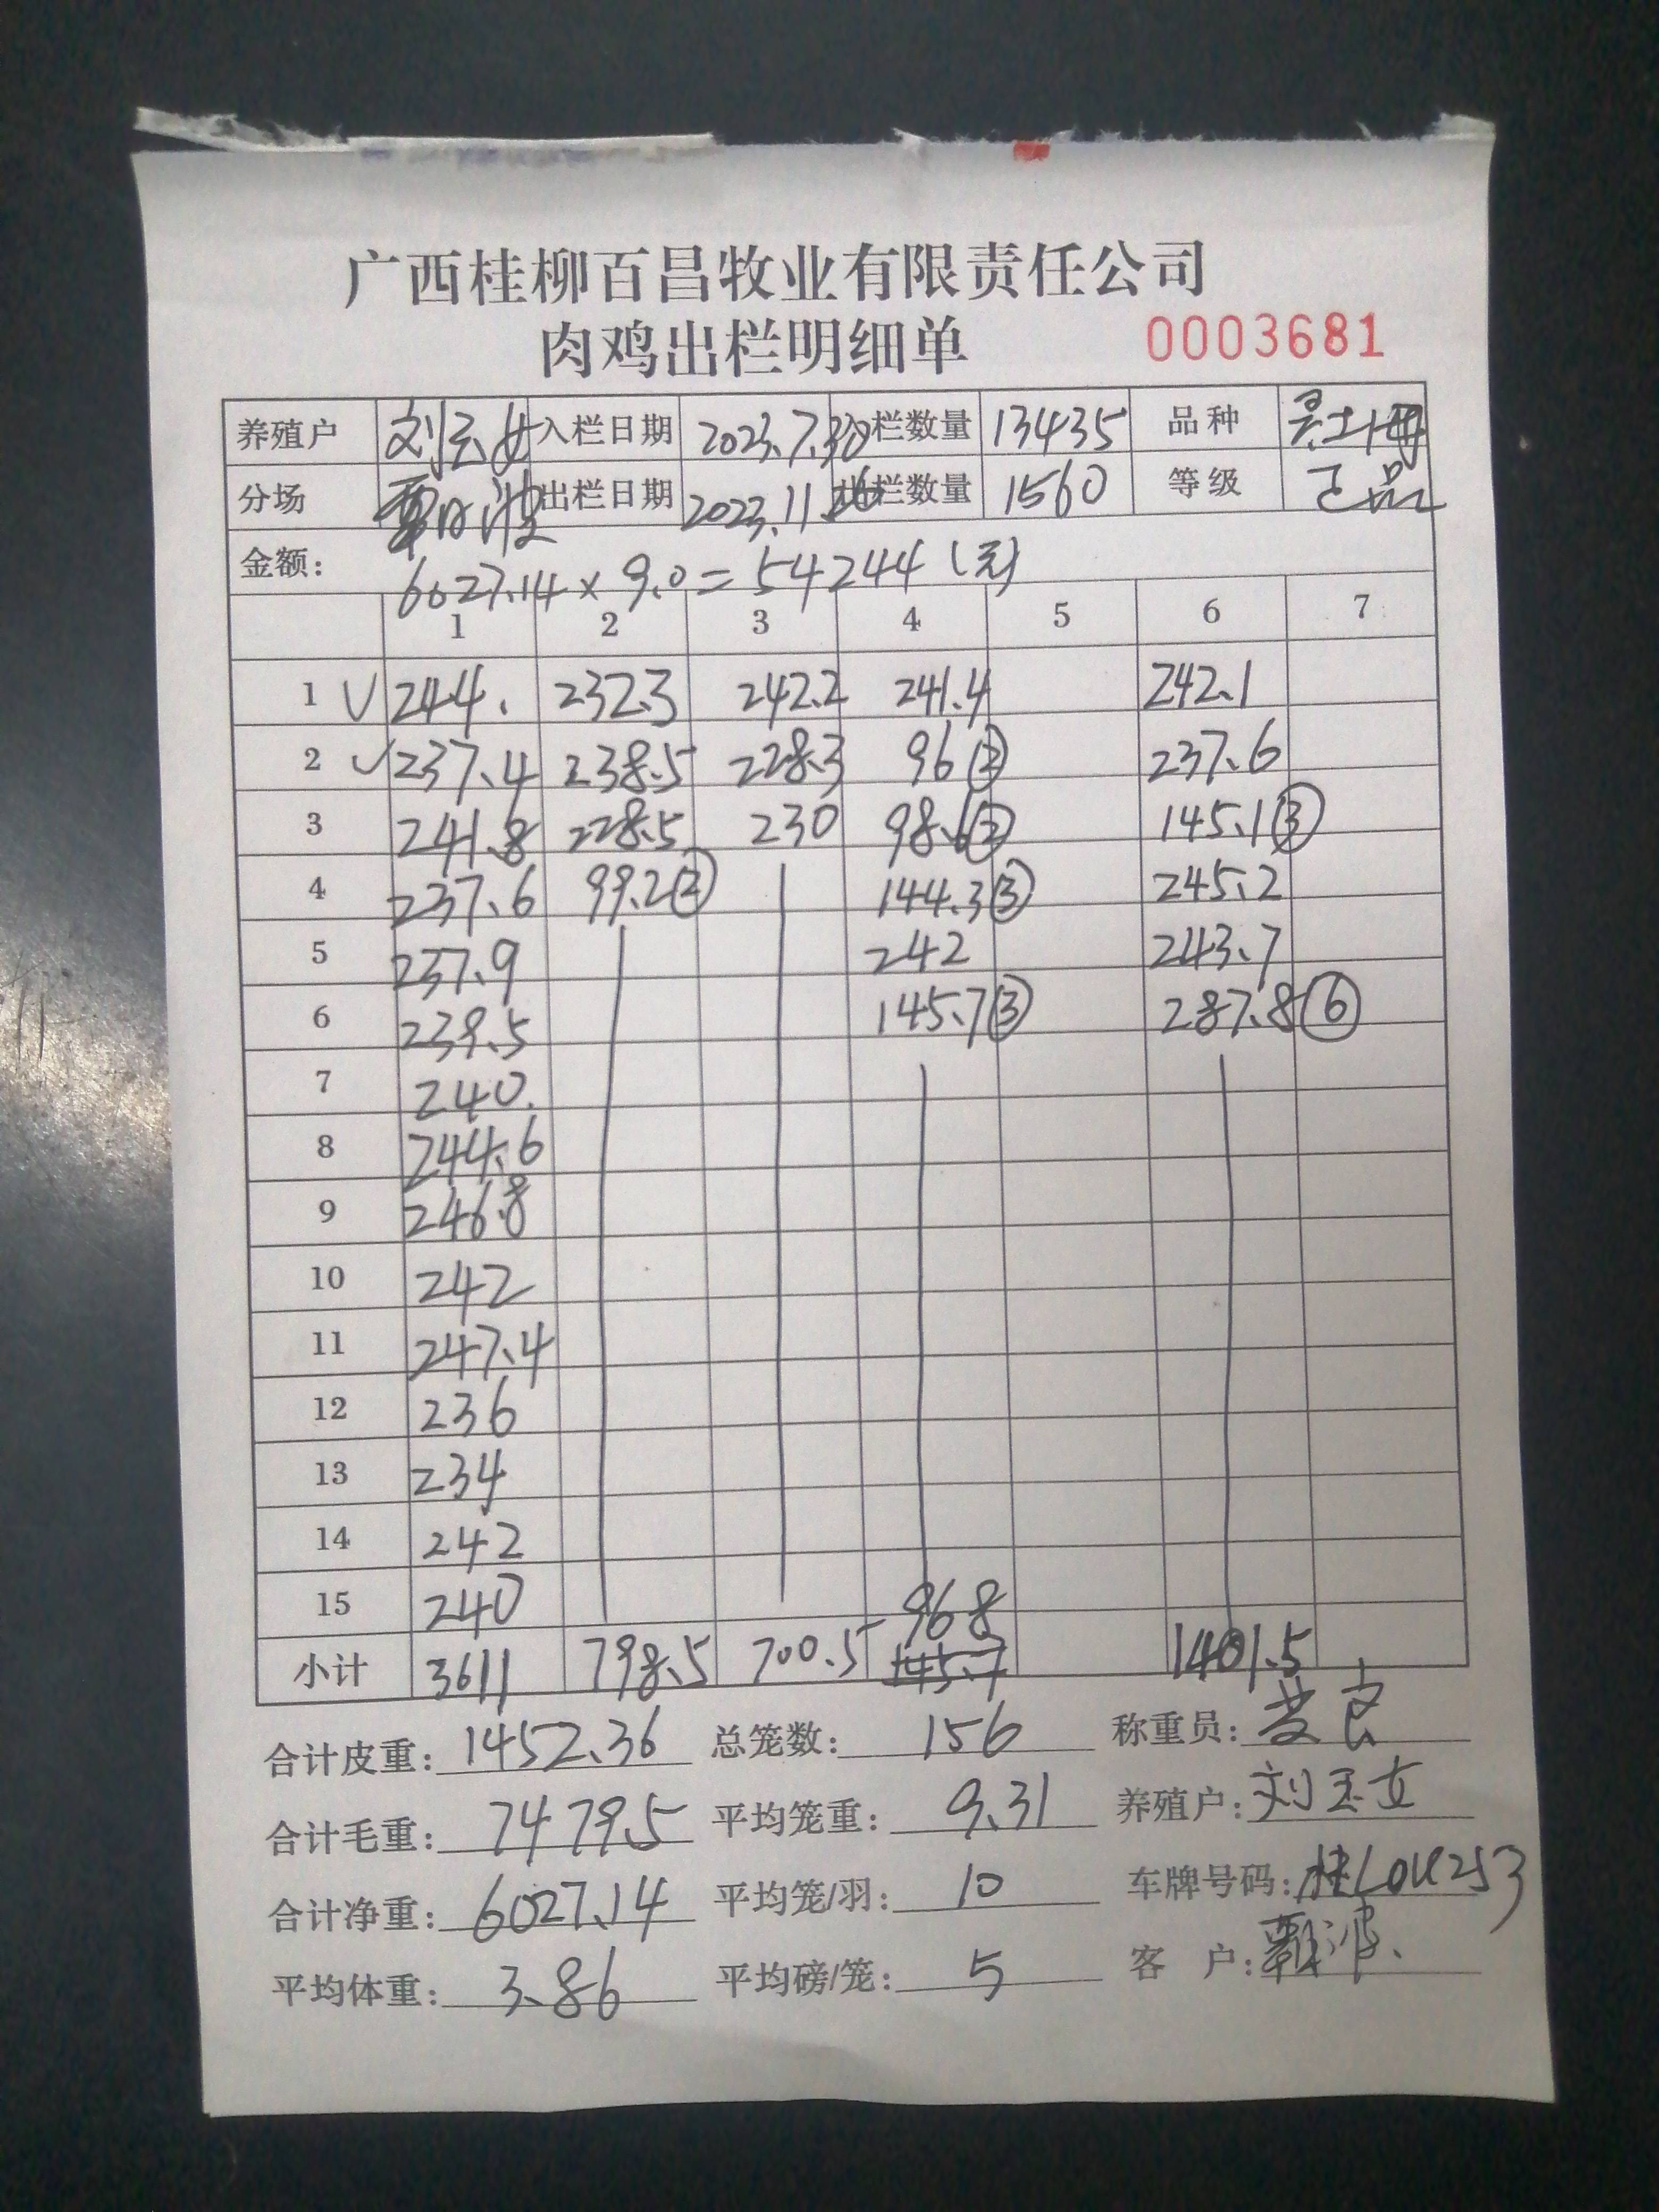 广西桂柳百昌牧业有限责任公司
肉鸡出栏明细单 0003681
养殖户 刘玉女 入栏日期 2023.7.30 栏数量 13435 品种
分场 出栏日期 2023.11.26 出栏数量 1560 等级 正品
金额: 6027.14 × 9.0 = 54244 (元)
1 2 3 4 5 6 7
1 √ 244. 232.3 242.2 241.4 242.1
2 √ 237.4 238.5 228.3 96② 237.6
3 241.8 228.5 230 98.6② 145.1③
4 237.6 99.2② 144.3③ 245.2
5 237.9 242 243.7
6 239.5 145.7③ 287.8⑥
7 240.
8 244.6
9 246.8
10 242
11 247.4
12 236
13 234
14 242
15 240
小计 3611 798.5 700.5 968 145.7 1401.5
合计皮重: 1452.36 总笼数: 156 称重员:
合计毛重: 7479.5 平均笼重: 9.31 养殖户: 刘玉女
合计净重: 6027.14 平均笼/羽: 10 车牌号码:
平均体重: 3.86 平均磅/笼: 5 客 户: 覃波